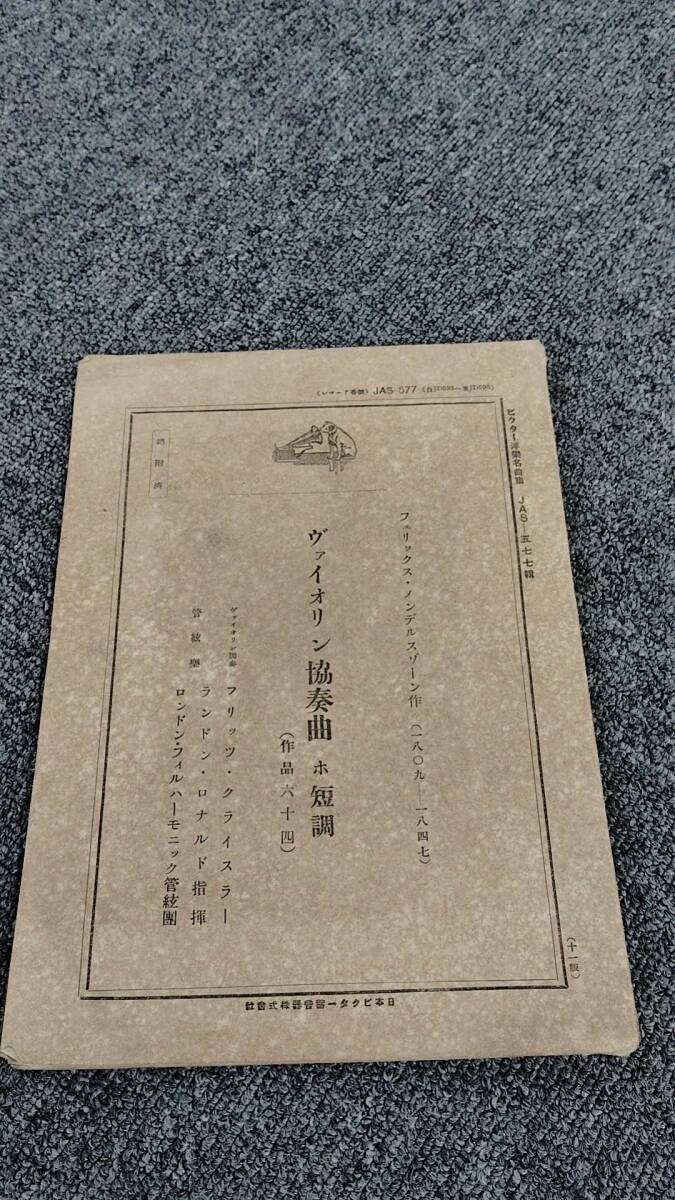 (レコード番號) JAS-577
ビクター洋樂名曲集 JAS—五七七輯
フェリックス・メンデルスゾーン作 (一八〇九—一八四七)
ヴァイオリン協奏曲 ホ短調
(作品六十四)
ヴァイオリン獨奏 フリッツ・クライスラー
管絃樂 ランドン・ロナルド指揮
ロンドン・フィルハーモニック管絃團
(十一版)
日本ビクター蓄音器株式會社